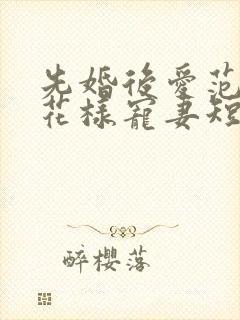 先婚後愛范
花樣寵妻短
醉櫻落